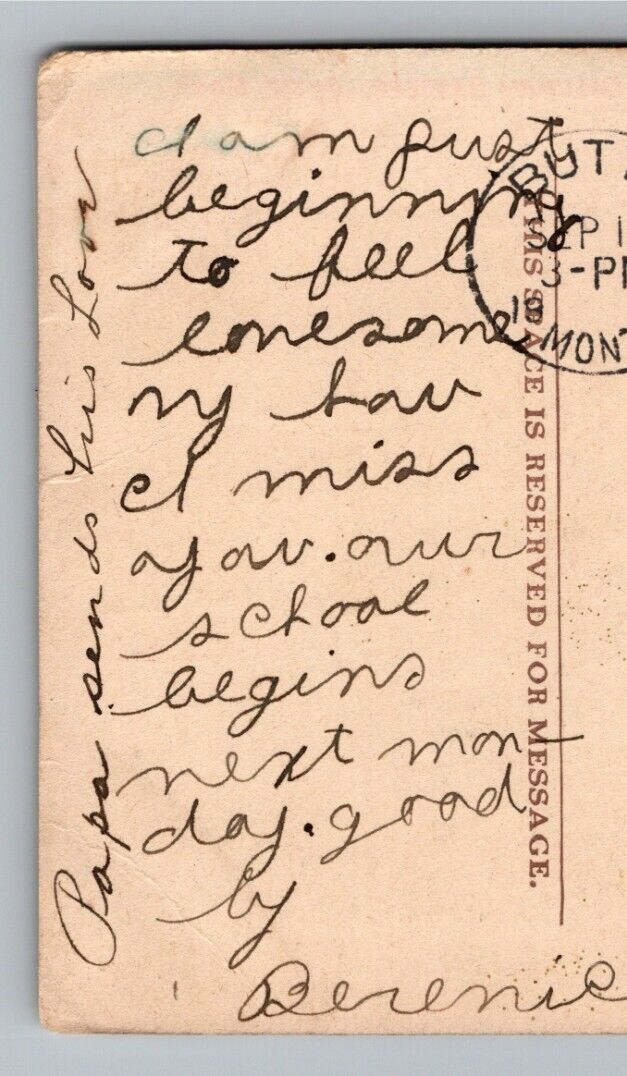 I am just
beginning
to feel
lonesome
my how
I miss
you. our
school
begins
next mon-
day. good
by
Berenic
Papa sends his Love
THIS SPACE IS RESERVED FOR MESSAGE.
BUT
SEP 1
3-P
19
MONT